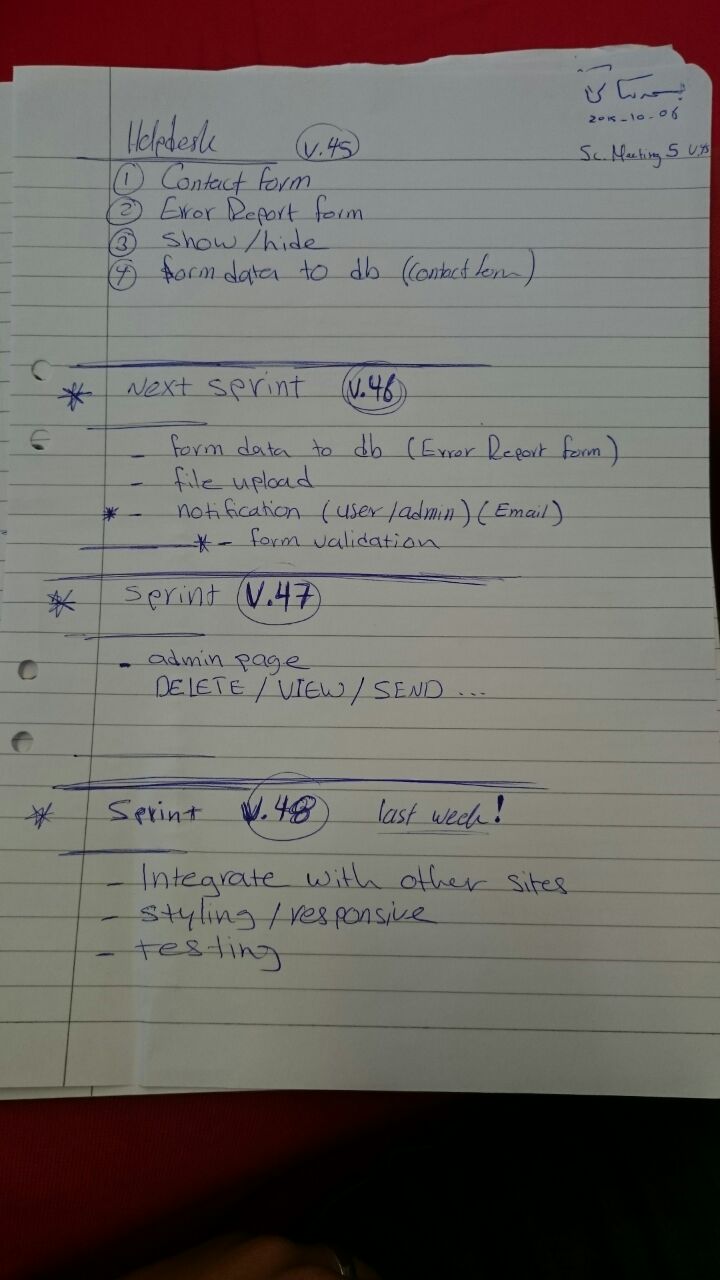 2015-10-06
Sc. Meeting 5 V.45
Helpdesk V.45
① Contact form
② Error Report form
③ Show/hide
④ form data to db (Contact form)
* Next sprint V.46
- form data to db (Error Report form)
- file upload
* - notification (user/admin) (Email)
* - form validation
* Sprint V.47
- admin page
DELETE / VIEW / SEND ...
* Sprint V.48 last week!
- Integrate with other sites
- styling / responsive
- testing